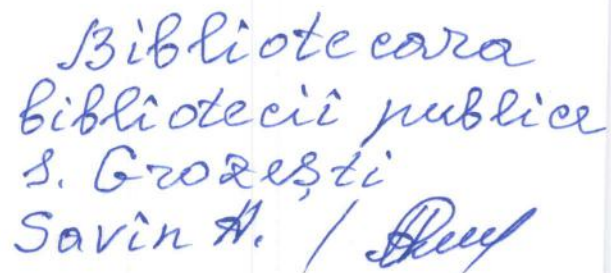 Bibliotecara
bibliotecii publice
s. Grozești
Savin A. /